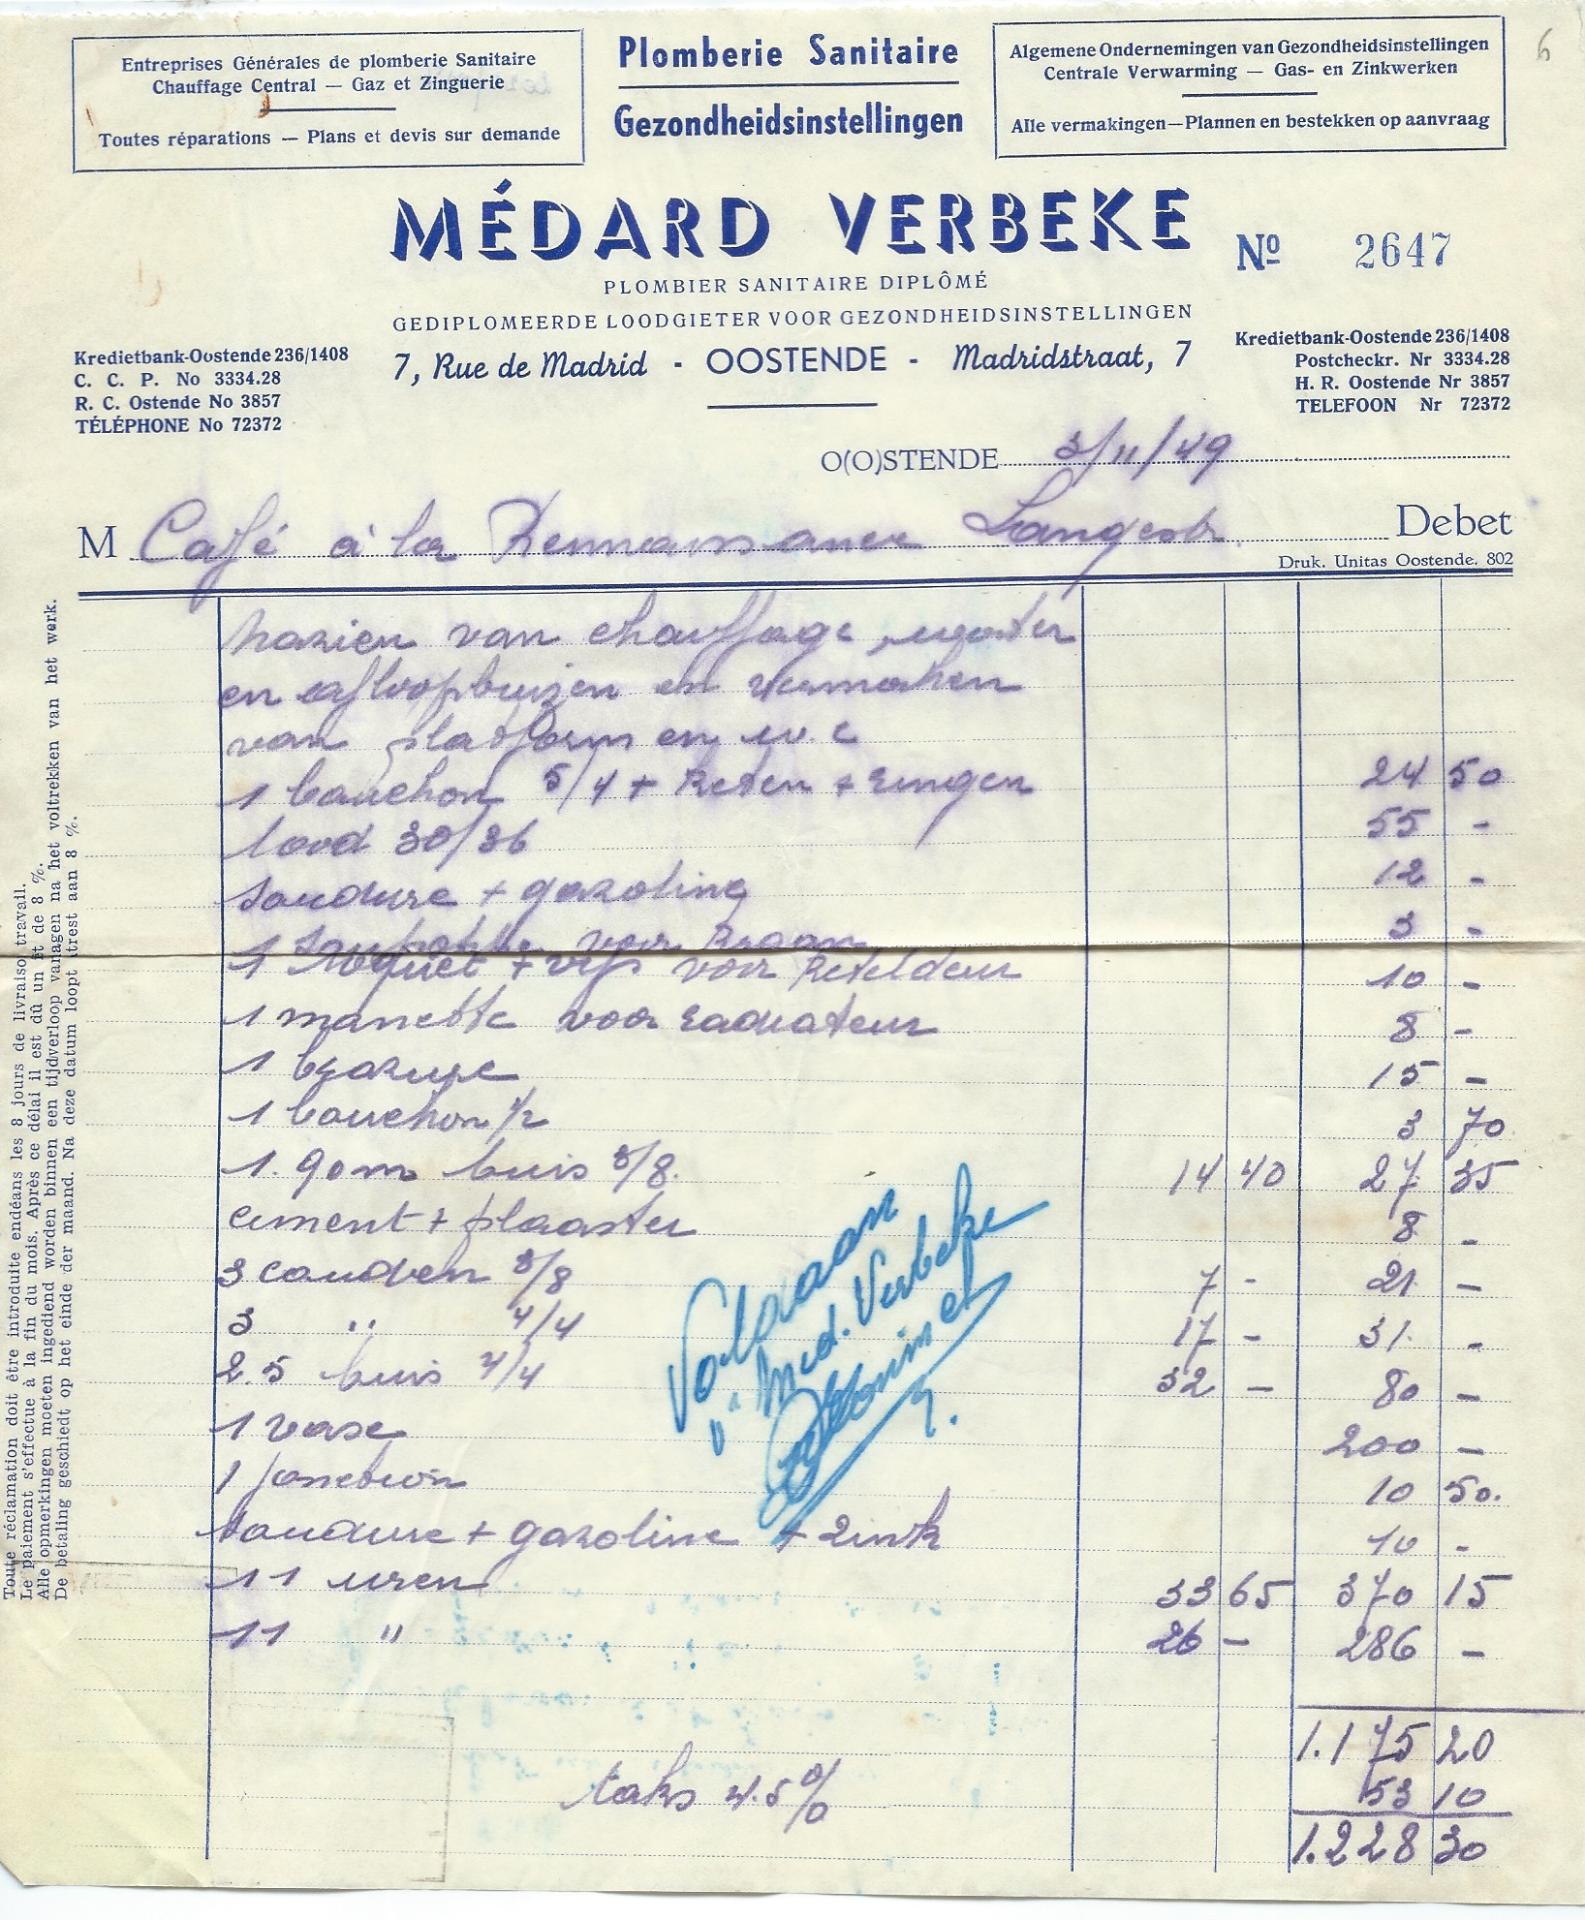 Entreprises Générales de plomberie Sanitaire
Chauffage Central — Gaz et Zinguerie
Toutes réparations — Plans et devis sur demande
Plomberie Sanitaire
Gezondheidsinstellingen
Algemene Ondernemingen van Gezondheidsinstellingen
Centrale Verwarming — Gas- en Zinkwerken
Alle vermakingen—Plannen en bestekken op aanvraag
6
MÉDARD VERBEKE
Nº 2647
PLOMBIER SANITAIRE DIPLÔMÉ
GEDIPLOMEERDE LOODGIETER VOOR GEZONDHEIDSINSTELLINGEN
7, Rue de Madrid - OOSTENDE - Madridstraat, 7
Kredietbank-Oostende 236/1408
C. C. P. No 3334.28
R. C. Ostende No 3857
TÉLÉPHONE No 72372
Kredietbank-Oostende 236/1408
Postcheckr. Nr 3334.28
H. R. Oostende Nr 3857
TELEFOON Nr 72372
O(O)STENDE 3/11/49
M Café à la Langestr. Debet
Druk. Unitas Oostende. 802
nazien van chauffage, water
en afloopbuizen en vermaken
van platform en w.c
1 bouchon 5/4 + keten + ringen 24 50
lood 30/36 55 -
soudure + gazoline 12 -
1 soupape voor kraan 3 -
1 loquet + vijs voor keteldeur 10 -
1 manette voor radiateur 8 -
1 brasure 15 -
1 bouchon 1/2 3 70
1.90m buis 3/8. 14 40 27 35
ciment + plaaster 8 -
3 couden 3/8 7 - 21 -
3 " 4/4 17 - 51 -
2.5 buis 4/4 32 - 80 -
1 vase 200 -
1 jonction 10 50.
soudure + gazoline + zink 10 -
11 uren 33 65 370 15
11 " 26 - 286 -
1.175 20
taks 4.5% 53 10
1.228 30
Voldaan
Med. Verbeke
Toute réclamation doit être introduite endéans les 8 jours de livrais. travail.
Le paiement s'effectue à la fin du mois. Après ce délai il est dû un int de 8 %.
Alle opmerkingen moeten ingediend worden binnen een tijdverloop van agen na het voltrekken van het werk.
De betaling geschiedt op het einde der maand. Na deze datum loopt trest aan 8 %.